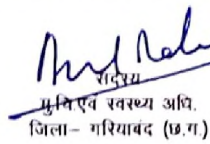 सदस्य
मु.चि.एवं स्वस्थ्य अधि.
जिला– गरियाबंद (छ.ग.)